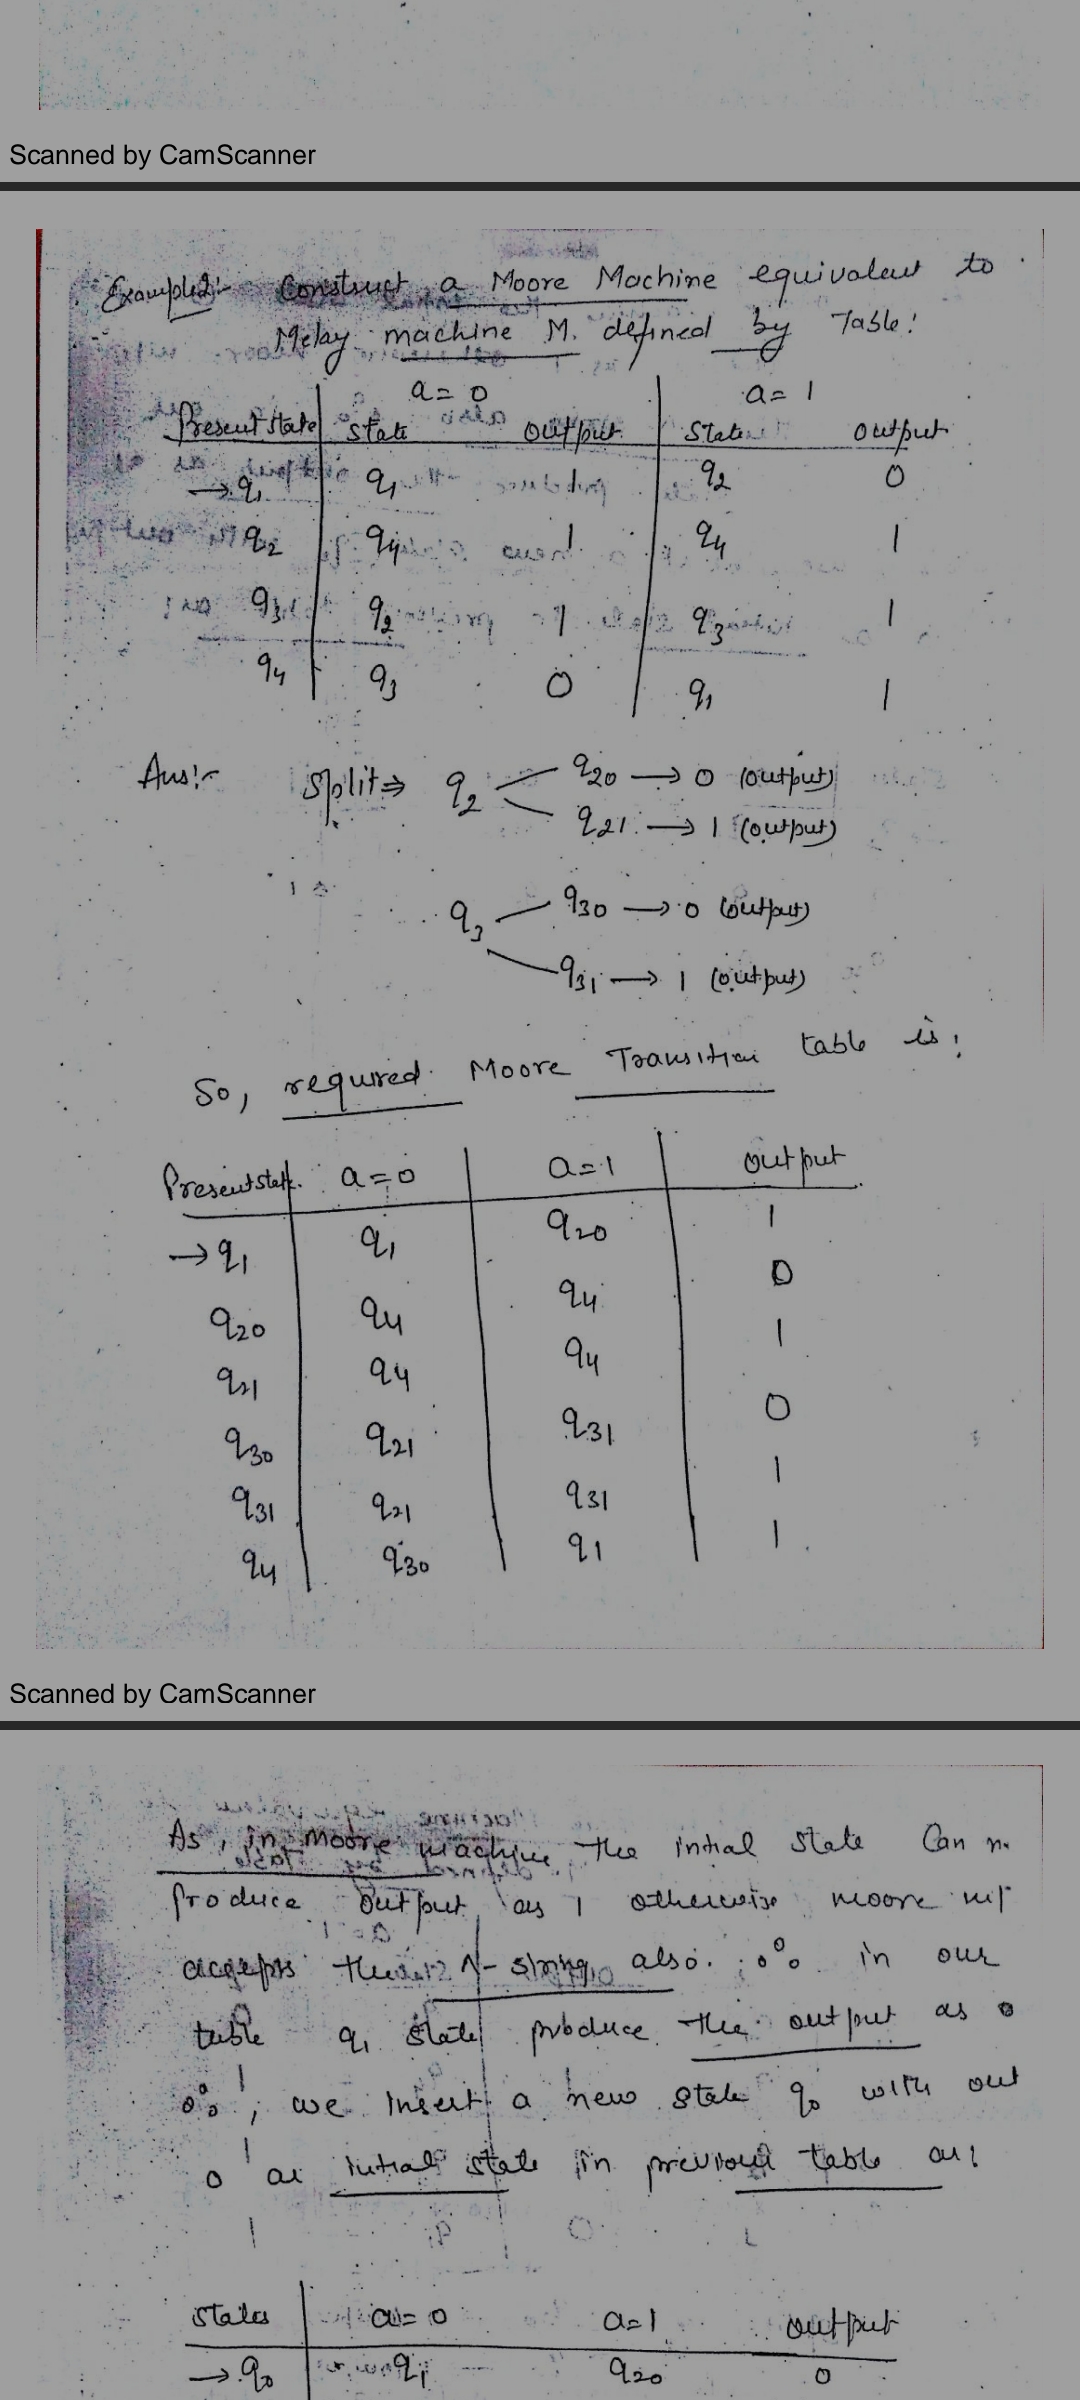 Scanned by CamScanner
Example2:- Construct a Moore Machine equivalent to
Melay machine M. defined by Table:
a = 0 a = 1
Present state State output State output
→ q1 q1 1 q2 0
q2 q4 1 q4 1
q3 q2 1 q3 1
q4 q3 0 q1 1
Ans:- Split ⇒ q2 q20 → 0 (output)
q21 → 1 (output)
q3 q30 → 0 (output)
q31 → 1 (output)
So, required Moore Transition table is:
Present state a = 0 a = 1 output
→ q1 q1 q20 1
q20 q4 q4 0
q21 q4 q4 1
q30 q21 q31 0
q31 q21 q31 1
q4 q30 q1 1
Scanned by CamScanner
As, in moore machine the initial state Can
produce output as 1 otherwise moore
accepts the Λ-string also. ∴ in our
table q1 state produce the output as 0
∴, we insert a new state q0 with out
0 as initial state in previous table as:
states a = 0 a = 1 output
→ q0 q1 q20 0